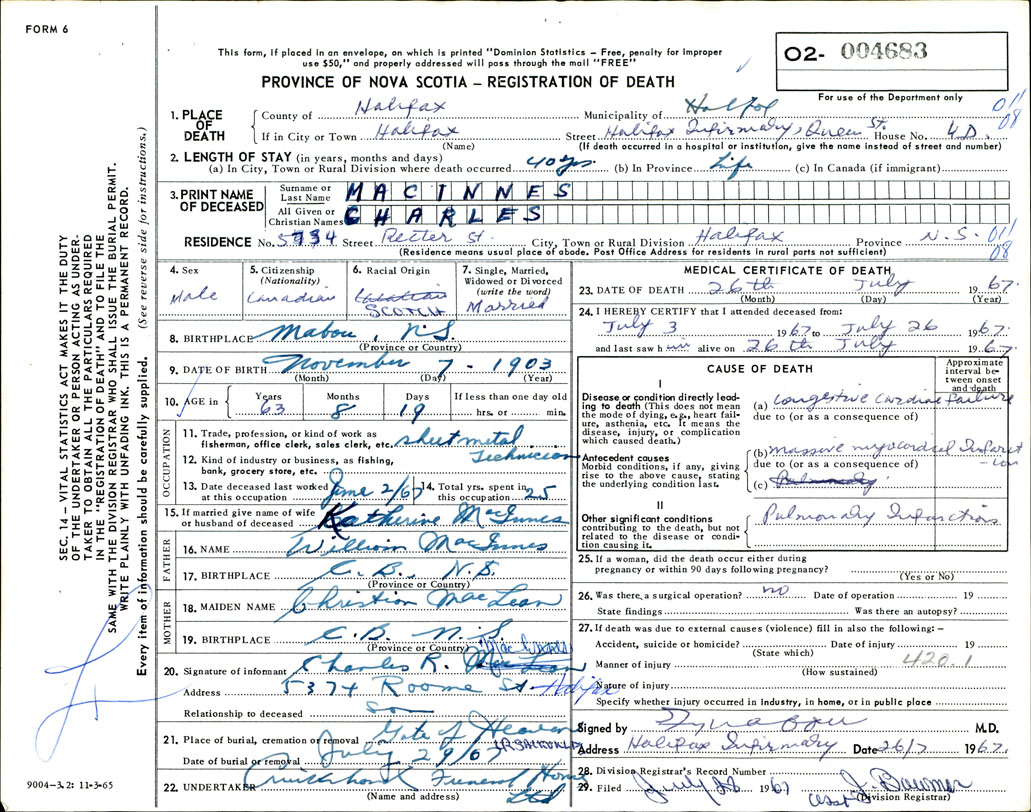 FORM 6
This form, if placed in an envelope, on which is printed "Dominion Statistics – Free, penalty for improper
use $50," and properly addressed will pass through the mail "FREE"
PROVINCE OF NOVA SCOTIA – REGISTRATION OF DEATH
O2- 004683
For use of the Department only
011
08
1. PLACE OF DEATH
County of Halifax Municipality of
If in City or Town Halifax Street Halifax Infirmary, Queen St. House No.
(Name) (If death occurred in a hospital or institution, give the name instead of street and number)
2. LENGTH OF STAY (in years, months and days)
(a) In City, Town or Rural Division where death occurred 40 yrs. (b) In Province Life (c) In Canada (if immigrant)
3. PRINT NAME OF DECEASED
Surname or Last Name MACINNES
All Given or Christian Names CHARLES
RESIDENCE No. Street St. City, Town or Rural Division Halifax Province N.S. 011
08
(Residence means usual place of abode. Post Office Address for residents in rural parts not sufficient)
4. Sex
Male
5. Citizenship
(Nationality)
Canadian
6. Racial Origin
SCOTCH
7. Single, Married,
Widowed or Divorced
(write the word)
Married
8. BIRTHPLACE Mabou, N.S.
(Province or Country)
9. DATE OF BIRTH November 7 - 1903
(Month) (Day) (Year)
10. AGE in
Years Months Days If less than one day old
63 8 19 hrs. or min.
OCCUPATION
11. Trade, profession, or kind of work as
fisherman, office clerk, sales clerk, etc. sheet metal
Technician
12. Kind of industry or business, as fishing,
bank, grocery store, etc.
13. Date deceased last worked
at this occupation June 2/67
14. Total yrs. spent in
this occupation 25
15. If married give name of wife
or husband of deceased Katherine MacInnes
FATHER
16. NAME William MacInnes
17. BIRTHPLACE C.B., N.S.
(Province or Country)
MOTHER
18. MAIDEN NAME Christian MacLean
19. BIRTHPLACE C.B. N.S.
(Province or Country)
20. Signature of informant Charles R.
Address 5374 Roome St. Halifax
Relationship to deceased son
21. Place of burial, cremation or removal Gate of Heaven
Date of burial or removal July 29/67
22. UNDERTAKER Cruikshank Funeral Home
Ltd
(Name and address)
MEDICAL CERTIFICATE OF DEATH
23. DATE OF DEATH 26th July 1967
(Month) (Day) (Year)
24. I HEREBY CERTIFY that I attended deceased from:
July 3 1967 to July 26 1967
and last saw him alive on 26th July 1967
CAUSE OF DEATH
Approximate
interval be-
tween onset
and death
I
Disease or condition directly lead-
ing to death (This does not mean
the mode of dying, e.g., heart fail-
ure, asthenia, etc. It means the
disease, injury, or complication
which caused death.)
(a) Congestive Cardiac failure
due to (or as a consequence of)
Antecedent causes
Morbid conditions, if any, giving
rise to the above cause, stating
the underlying condition last.
(b) massive myocardial Infarct
-ion
due to (or as a consequence of)
(c)
II
Other significant conditions
contributing to the death, but not
related to the disease or condi-
tion causing it.
Pulmonary Infarctions
25. If a woman, did the death occur either during
pregnancy or within 90 days following pregnancy?
(Yes or No)
26. Was there a surgical operation? no Date of operation 19
State findings Was there an autopsy?
27. If death was due to external causes (violence) fill in also the following: –
Accident, suicide or homicide? Date of injury 19
(State which)
420.1
Manner of injury
(How sustained)
Nature of injury
Specify whether injury occurred in industry, in home, or in public place
Signed by M.D.
Address Halifax Infirmary Date 26/7 1967
28. Division Registrar's Record Number
29. Filed July 28 1967
(Division Registrar)
SEC. 14 – VITAL STATISTICS ACT MAKES IT THE DUTY
OF THE UNDERTAKER OR PERSON ACTING AS UNDER-
TAKER TO OBTAIN ALL THE PARTICULARS REQUIRED
IN THE "REGISTRATION OF DEATH" AND TO FILE THE
SAME WITH THE DIVISION REGISTRAR WHO SHALL ISSUE THE BURIAL PERMIT.
WRITE PLAINLY WITH UNFADING INK. THIS IS A PERMANENT RECORD.
Every item of information should be carefully supplied. (See reverse side for instructions.)
9004-3.2: 11-3-65